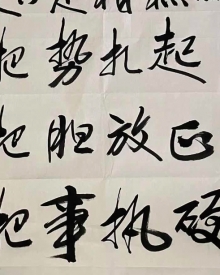 把势扎起
把胆放正
把事执硬